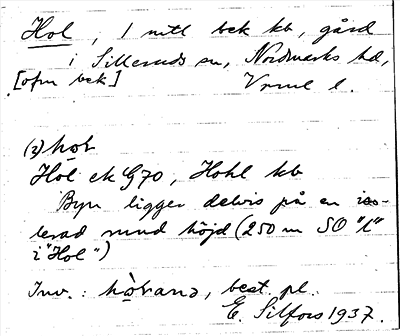 Hol, 1 mtl bek kb, gård
i Silleruds sn, Nordmarks hd,
[ofm bek] Vrml l.
(2) hol
Hol ek G70, Hohl kb
Byn ligger delvis på en iso-
lerad rund höjd (250 m SO "l"
i "Hol")
Inv.: hòlvană, best. pl.
E. Silfors 1937.